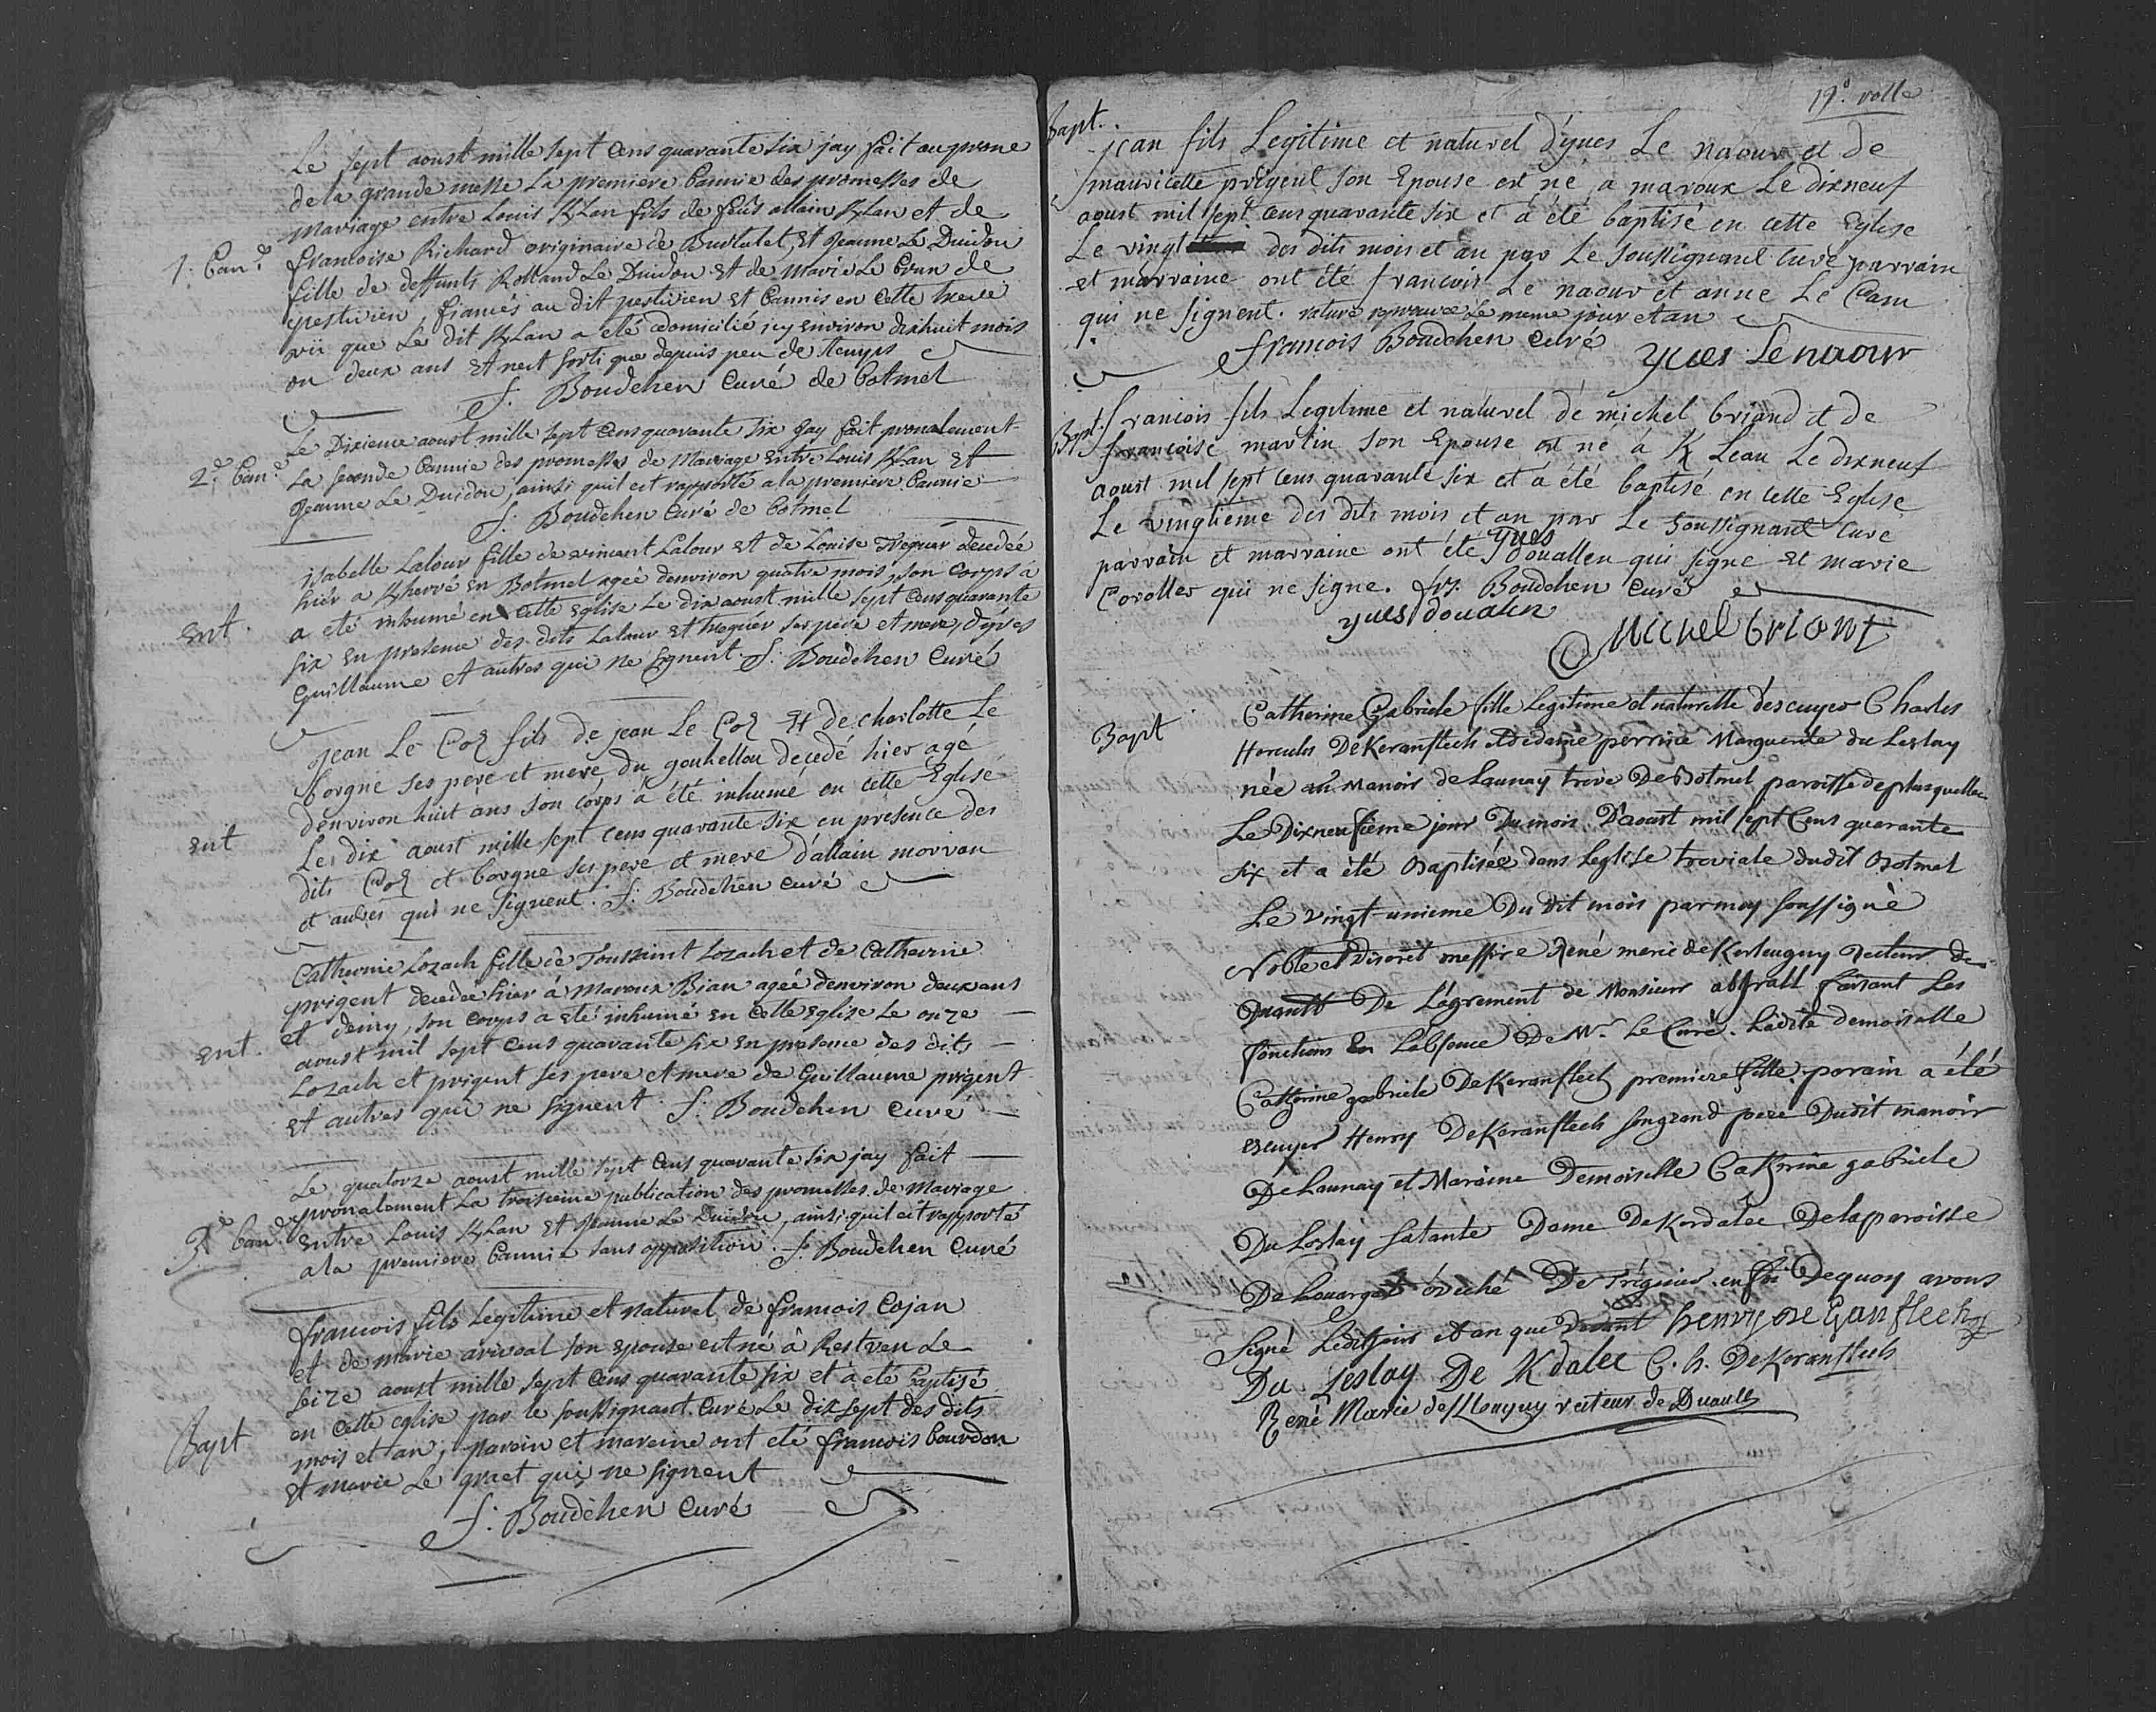 Le sept aoust mille sept Cens quarante six jay fait au prone
de la grande messe La premiere bannie des promesses de
mariage entre Louis Kylan fils de feüs allain Kylan et de
1. ban.e francoise Richard originaire de Burtulet, Et Jeanne Le Duidou
fille de deffunts Rolland Le Duidou Et de Marie Le brun de
pestivien, fiancés au dit pestivien Et bannis en Cette treve
vû que Le dit Kylan a eté domicilié icy environ dixhuit mois
ou deux ans Et nest sorti que depuis peu de temps
f. Boudehen Curé de botmel
Le Dixieme aoust mille sept Cens quarante six jay fait pronalement
2.e ban.e La seconde bannie des promesses de Mariage Entre Louis Kylan Et
Jeanne Le Duidou, ainsi quil est rapporté a la premiere bannie
f. Boudehen Curé de bôtmel
isabelle Lalour fille de vincent Lalour Et de Louise Treguer decedée
hier a Kherve en Botmel ageé denviron quatre mois, son Corps à
Ent. a eté inhumé en Cette Eglise Le dix aoust mille sept Cens quarante
six en presence des dits Lalour et treguer ses pere et mere, dyves
Guillaume et autres qui ne signent. f. Boudehen Curé
jean Le Coz fils de jean Le Coz Et de charlotte Le
borgne ses pere et mere du gouhellou décedé hier agé
d'environ huit ans son corps à été inhumé en cette Eglise
Ent Le dix aoust mille sept cens quarante-six en présence des
dits Coz et borgne ses pere et mere d'allain morvan
et autres qui ne signent. f. Boudehen curé
Catherine Lozach fille de Toussaint Lozach et de Catherine
prigent decedée hier à Maroux Bian ageé denviron deux ans
Ent. et demy, son corps a eté inhumé en Cette Eglise Le onze
aoust mil sept Cens quarante six en presence des dits
Lozach et prigent ses pere et mere de Guillaume prigent
Et autres qui ne signent. f. Boudehen Curé
Le quatorze aoust mille sept Cens quarante six jay fait
pronalement La troisieme publication des promesses de Mariage
3.e ban.e Entre Louis Kylan Et Jeanne Le Duidou, ainsi quil est rapporté
a la premiere bannie sans opposition. f. Boudehen Curé
francois fils Legitime et naturel de francois Cojan
et de marie arivoal son epouse est né à Restven Le
seize aoust mille sept Cens quarante six et à eté baptisé
en Cette eglise par le soussignant Curé Le dix sept des dits
Bapt mois et an, parain et maraine ont eté francois bourdon
Et marie Le graet qui ne signent
f. Boudehen Curé
19.e rolle
Bapt. jean fils Legitime et naturel d'yves Le naour et de
mauricette prigent son Epouse est né à maroux Le dixneuf
aoust mil sept cens quarante six et à été baptisé en cette Eglise
Le vingt des dits mois et an par Le soussignant Curé parrain
et marraine ont été francois Le naour et anne Le Cam
qui ne signent. rature approuveé Le meme jour et an
francois Boudehen Curé yves Le naour
Bapt. francois fils Legitime et naturel de michel briand et de
francoise martin son Epouse est né à K Leau Le dixneuf
aoust mil sept cens quarante six et à été baptisé en cette Eglise
Le vingtieme des dits mois et an par Le soussignant Curé
parrain et marraine ont été yves douallen qui signe Et marie
Coroller qui ne signe. frs. Boudehen Curé
yves doualen
Michel briant
Bapt Catherine Gabriele fille legitime et naturelle d'escuyer Charles
Hercules DeKeranflech et de dame perrine Marguerite du Leslay
née au Manoir de Launay treve De Botmel paroisse de plusquellec
Le Dixneufieme jour Du mois D'aoust mil sept Cens quarante
six et a été Baptisée dans Leglise treviale dudit Botmel
Le vingt-unieme Du Dit mois par moy soussigné
Noble et Discret messire René marie de Kerleuguy Recteur de
Duault De L'agrement de Monsieur abgrall faisant Les
fonctions En L'absence De Mr. Le Curé. Ladite demoiselle
Catherine gabriele DeKeranflech premiere fille. parain a été
escuyer Henry DeKeranflech son grand pere Dudit manoir
De Launay et Maraine Demoiselle Catherine gabriele
Du Leslay sa tante Dame DeKerdalec De la paroisse
De Louargat évêché De Tréguier en foi Dequoy avons
signé Ledit jour et an que Devant henry de Keranflech
Du Leslay De K dalec C. h. DeKeranflech
René Marie de Kleuguy recteur de Duault